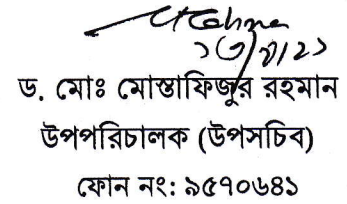 ড. মোঃ মোস্তাফিজুর রহমান
উপপরিচালক (উপসচিব)
ফোন নং: ৯৫৭০৬৪১